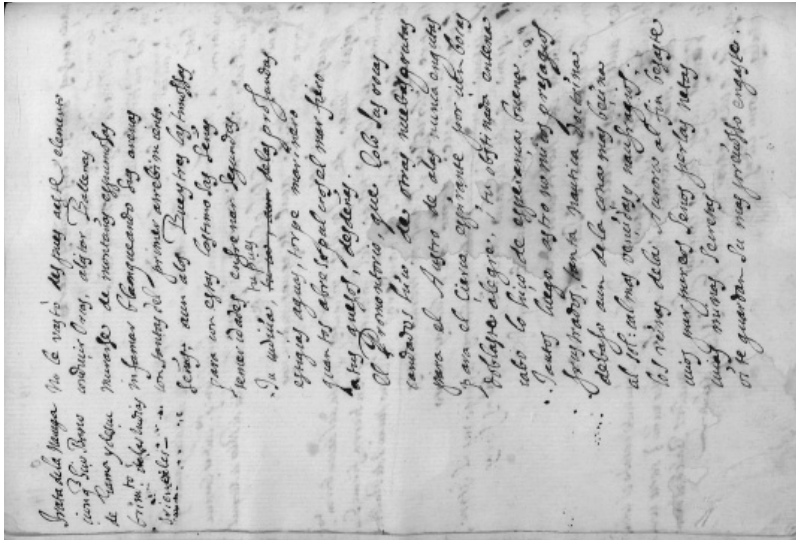 Trata de la navega
cion q hiço
de Gama y descu
brimto de las indias
Orientales
No le bastó despues a este elemento
conducir Orcas, alistar Ballenas
murarse de montañas espumosas
infamar blanqueando sus arenas
con tantas del primer atrevimiento
señas aun a los Bueytres lastimosas
para con estas lastimosas señas
temeridades enfrenar segundas.
Tu cudicia, tu pues de las profundas
estigias aguas, torpe marinero
quantos abre sepulcros el mar fiero
a tus guesos, desdeñas.
el Promontorio, que Eolo sus rocas
candados hiço de otras nuebas grutas
para el Austro de alas nunca enjutas
para el Cierço espirante por cien bocas
doblaste alegre, i tu obstinada entena
cabo lo hiço de esperança buena.
Tantos luego astronomicos presagios
frustrados, tanta nautica doctrina
debajo aun de la zona mas vecina
al sol, calmas vencidas i naufragios
los reinos de la Aurora al fin besaste
cuios purpureos senos perlas netas
cuias minas secretas
oi te guardan su mas precioso engaste.